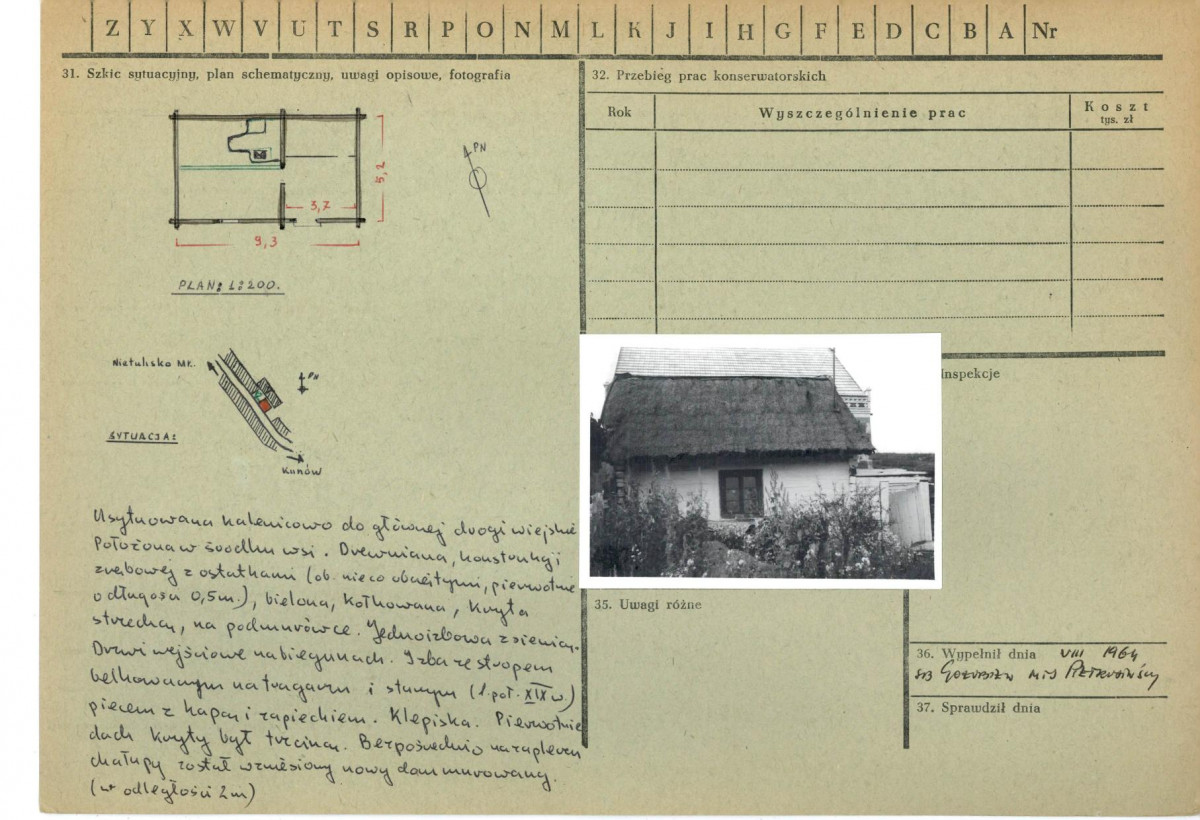 Z Y X W V U T S R P O N M L K J I H G F E D C B A Nr
31. Szkic sytuacyjny, plan schematyczny, uwagi opisowe, fotografia
PN
5,2
3,7
9,3
PLAN: 1:200.
Nietulisko Mł.
PN
SYTUACJA:
Kunów
Usytuowana kalenicowo do głównej drogi wiejskie
Położona w środku wsi. Drewniana, konstrukcji
zrębowej z ostatkami (ob. nieco obciętymi, pierwotnie
o długości 0,5m.), bielona, kołkowana, kryta
strzechą, na podmurówce. Jednoizbowa z sienią.
Drzwi wejściowe na biegunach. Izba ze stropem
belkowanym na tragarzu i starym (1. poł. XIX w.)
piecem z kapą i zapieckiem. Klepiska. Pierwotnie
dach kryty był trzciną. Bezpośrednio na zapleczu
chałupy został wzniesiony nowy dom murowany.
(w odległości 2m)
32. Przebieg prac konserwatorskich
Rok Wyszczególnienie prac Koszt
tys. zł
inspekcje
35. Uwagi różne
36. Wypełnił dnia VIII 1964
37. Sprawdził dnia